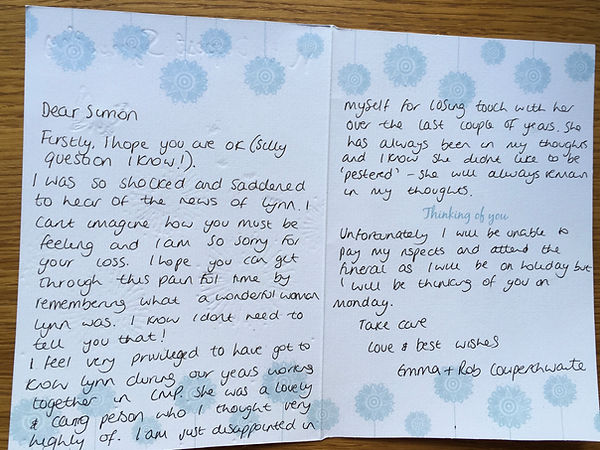 Dear Simon
Firstly, I hope you are ok (silly
question I know!).
I was so shocked and saddened
to hear of the news of Lynn. I
cant imagine how you must be
feeling and I am so sorry for
your loss. I hope you can get
through this painful time by
remembering what a wonderful woman
Lynn was. I know I dont need to
tell you that!
I feel very privileged to have got to
know Lynn during our years working
together in CMP. She was a lovely
& caring person who I thought very
highly of. I am just disappointed in
myself for losing touch with her
over the last couple of years. She
has always been in my thoughts
and I know she didnt like to be
'pestered' - she will always remain
in my thoughts.
Thinking of you
Unfortunately I will be unable to
pay my respects and attend the
funeral as I will be on holiday but
I will be thinking of you on
Monday.
Take care
Love & best wishes
Emma + Rob Couperthwaite